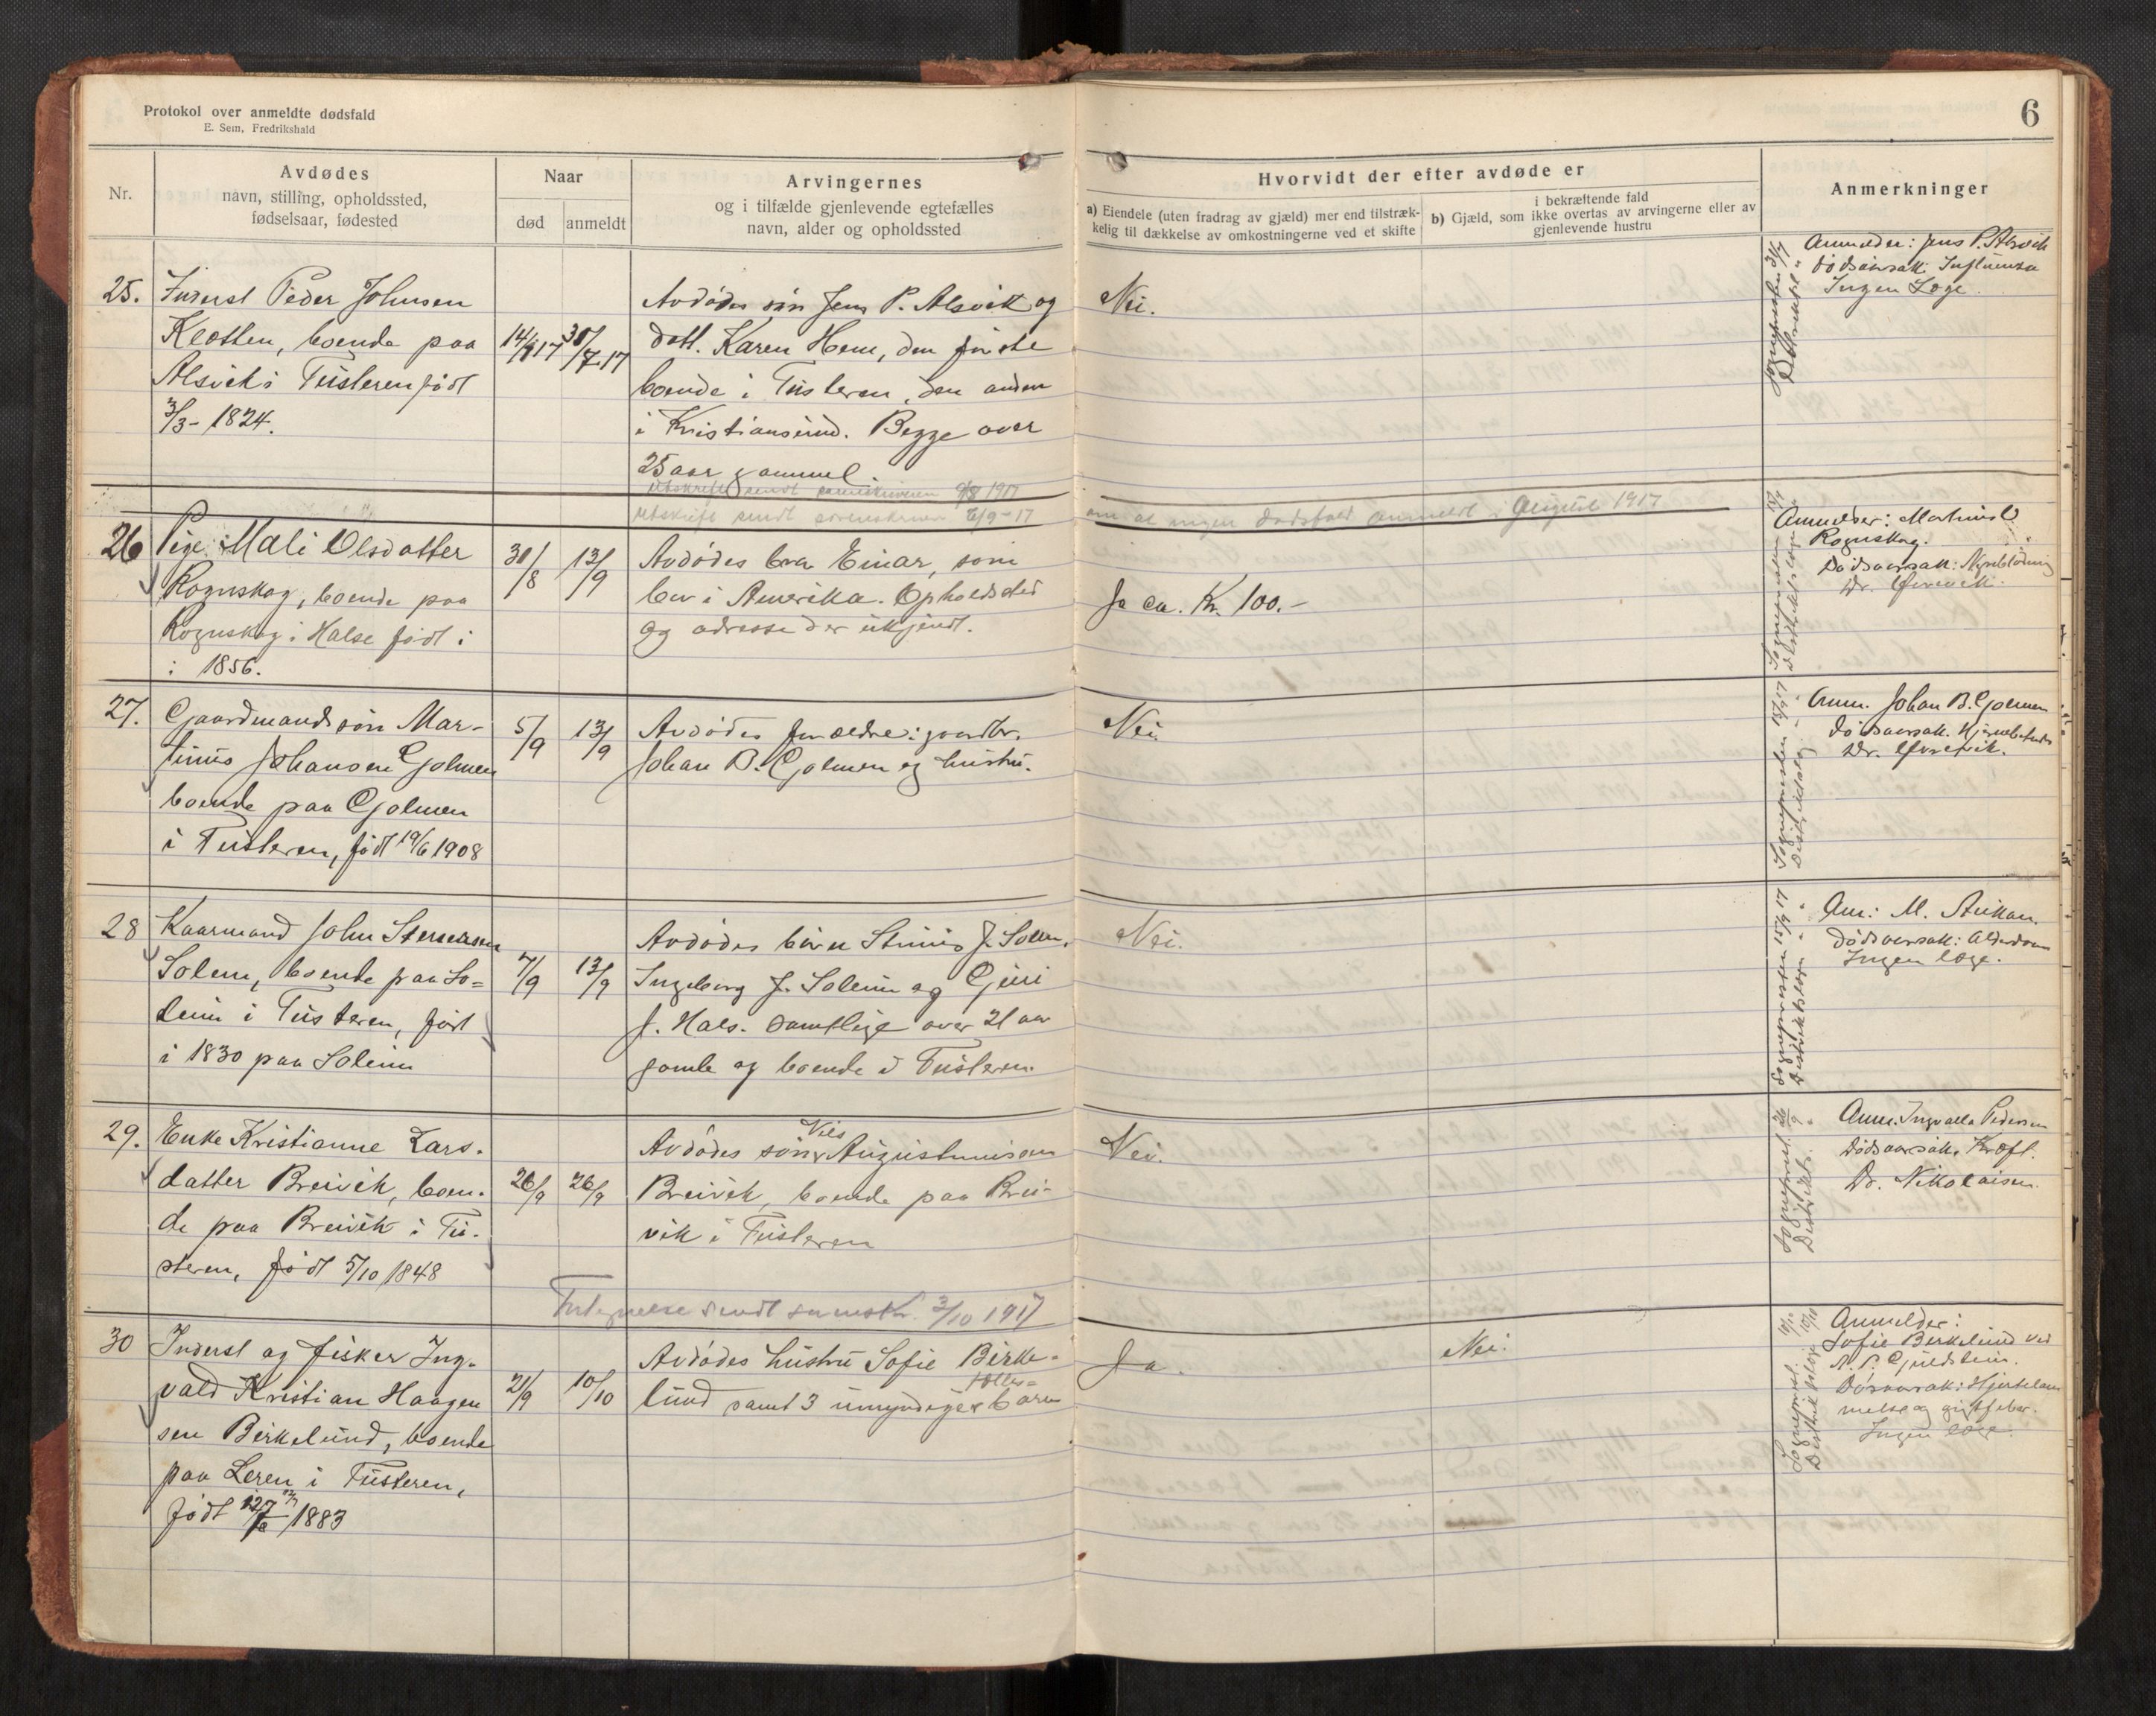 Protokol over anmeldte dødsfald
E. Sem, Fredrikshald
6
Nr.
Avdødes
navn, stilling, opholdssted,
fødselsaar, fødested
Naar
død
anmeldt
Arvingernes
og i tilfælde gjenlevende egtefælles
navn, alder og opholdssted
Hvorvidt der efter avdøde er
a) Eiendele (uten fradrag av gjæld) mer end tilstræk-
kelig til dækkelse av omkostningerne ved et skifte
i bekræftende fald
b) Gjæld, som ikke overtas av arvingerne eller av
gjenlevende hustru
Anmerkninger
25.
Inderst Peder Johnsen
Klotten, boende paa
Alsvik i Tusteren født
3/3 - 1824.
30/7-17
Avdødes søn Jens P. Alsvik og
datt. Karen Hem, den første
boende i Tusteren, den anden
i Kristiansund. Begge over
25 aar gammel.
Utskrift sendt 1917
Nei.
Anmelder: Jens P. Alsvik
Dødsaarsak: Influensa
Ingen Læge.
Sognepresten 31/7
Utskrift sendt 6/9-17
om at ingen dødsfald anmeldt i August 1917
26
Pige Mali Olsdatter
Rognskog, boende paa
Rognskog i Halse født i
i 1856.
30/8
13/9
Avdødes bror Einar, som
bor i Amerika. Opholdssted
og adresse der ukjendt.
Ja ca. Kr. 100.-
Anmelder: Martinus O.
Rognskog.
Dødsaarsak:
Dr.
27.
Gaardmandssøn Mar-
tinus Johansen Golmen
boende paa Golmen
i Tusteren, født 19/6 1908
5/9
13/9
Avdødes forældre: gaardbr.
Johan B. Golmen og hustru.
Nei.
Anm. Johan B. Golmen
Dødsaarsak.
Dr.
Sognepresten 13/9 17
28
Kaarmand John
Solem, boende paa So-
leim i Tusteren, født
i 1830 paa Soleim
7/9
13/9
Avdødes børn J. Solem,
Ingeborg J. Soleim og Guri
J. Hals. Samtlige over 21 aar
gamle og boende i Tusteren.
Nei.
Anm: M.
Dødsaarsak: Alderdom
Ingen læge.
Sognepresten 17
29.
Enke Kristianne Lars-
datter Breivik, boen-
de paa Breivik i Tu-
steren, født 5/10 1848
26/9
26/9
Nils
Avdødes søn Augustinusson
Breivik, boende paa Brei-
vik i Tusteren
Nei.
Anm. Pedersen
Dødsaarsak. Kræft.
Dr. Nikolaisen.
sendt 3/10 1917
30
Inderst og fisker Ing-
vald Kristian Haagen
sen Birkelund, boende
paa Leren i Tusteren,
født 1883
21/9
10/10
Avdødes hustru Sofie Birke-
fælles-
lund samt 3 umyndige barn
Ja.
Nei.
Anmelder:
Sofie Birkelund ved
Dødsaarsak: Hjertelam
melse og giktfeber.
Ingen læge.